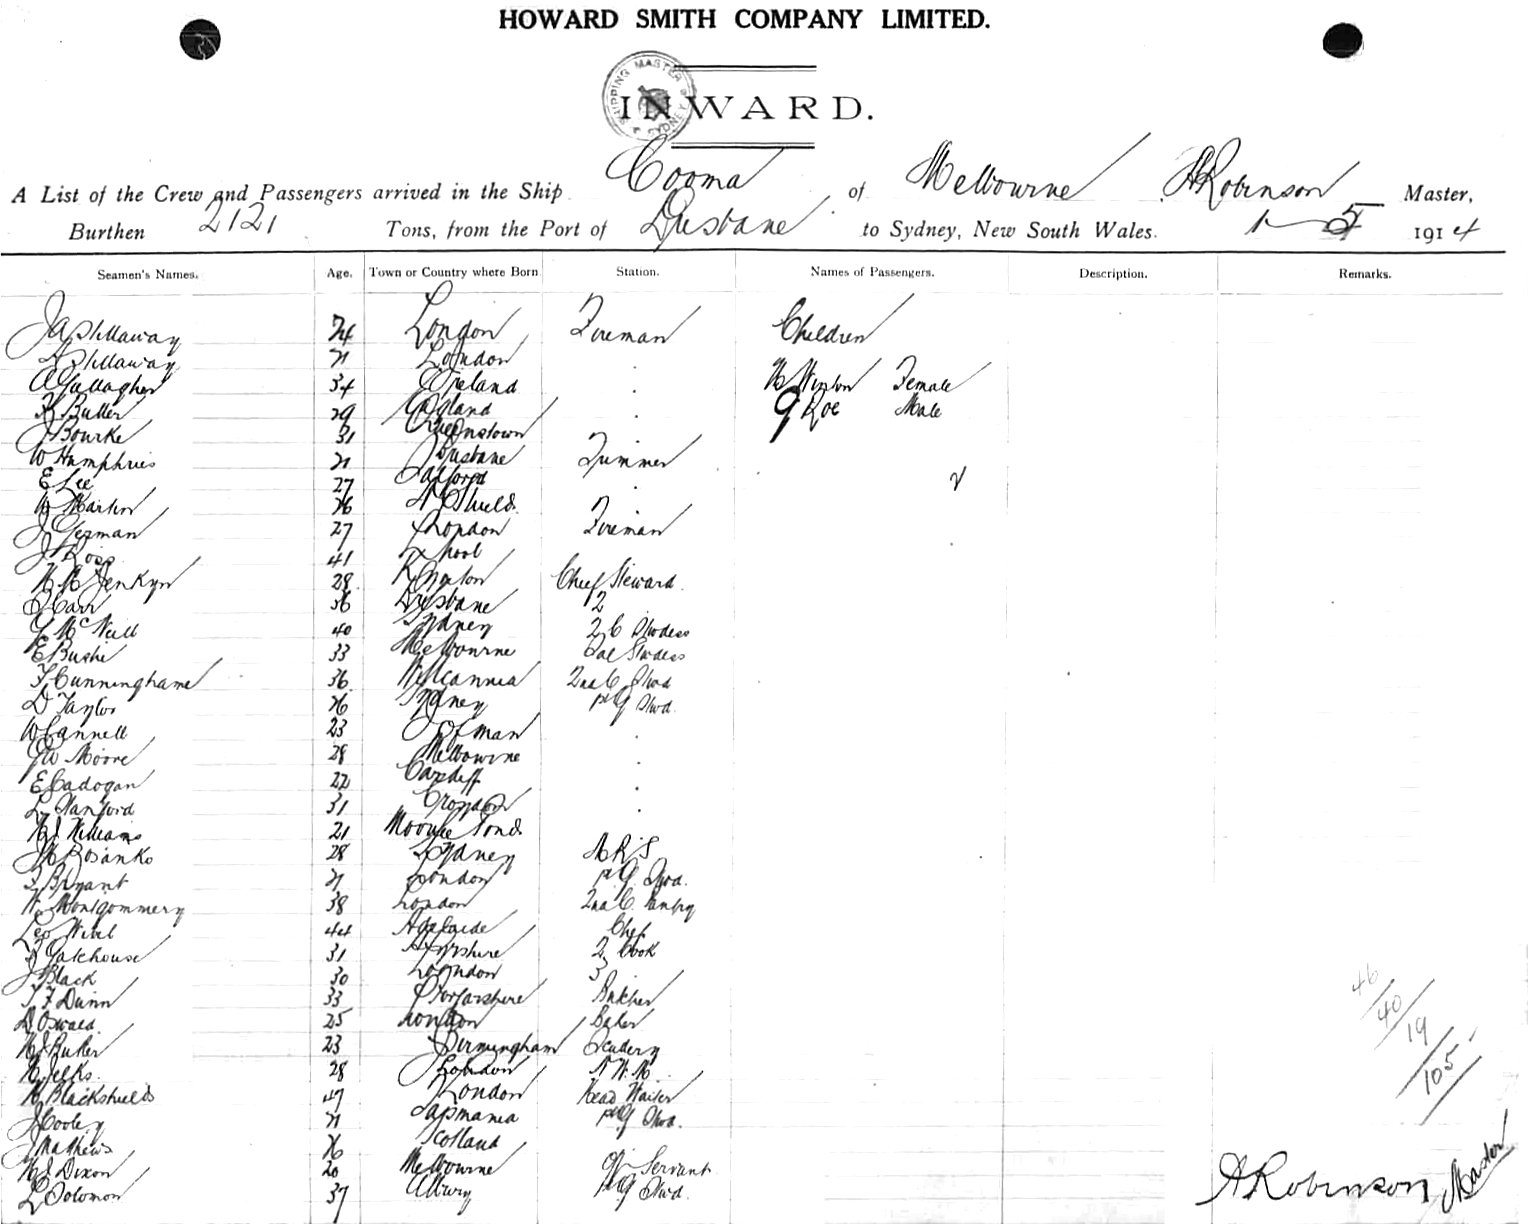 HOWARD SMITH COMPANY LIMITED.
SHIPPING MASTER SYDNEY
INWARD.
A List of the Crew and Passengers arrived in the Ship Cooma of Melbourne A Robinson Master,
Burthen 2121 Tons, from the Port of Brisbane to Sydney, New South Wales. 1 5 1914
Seamen's Names. Age. Town or Country where Born Station. Names of Passengers. Description. Remarks.
London Fireman Children
London
A Gallagher 34 Ireland Female
Butler 29 England G Roe Male
J Bourke 31 Queenstown
W Humphries Brisbane Trimmer
E Lee 27 Salford
W Martin N Shields
J German 27 London Fireman
J Ross 41 L'pool
Jenkyn 28 Chief Steward.
Carr 36 Brisbane 2
McNeill 40 Sydney 2 C Stwdess
E Bushe 33 Melbourne Stwdess
F Cunninghame 36 Wilcannia 2nd C Stwd
D Taylor Sydney Stwd.
W Cannell 23
G W Moore 28 Melbourne
E Cadogan 22 Cardiff
L Stanford 31 Croydon
H J Williams 21 Moonee Ponds
28 Sydney
Bryant London Stwd.
W Montgommery 38 London 2nd C. Pantry
Leo 44 Adelaide Chef
Gatehouse 31 Ayrshire 2 Cook
J Black 30 London 3
T F Dunn 33 Forfarshire Butcher
D Oswald. 25 London Baker
H J Butler 23 Birmingham
H Jelks. 28 London N. W. M
H Blackshields 47 London Head Waiter
J Cooley Tasmania Stwd.
J Mathews Scotland
H J Dixon 20 Melbourne Servant
L Solomon 37 Albury Stwd.
46
40
19
105
A Robinson Master